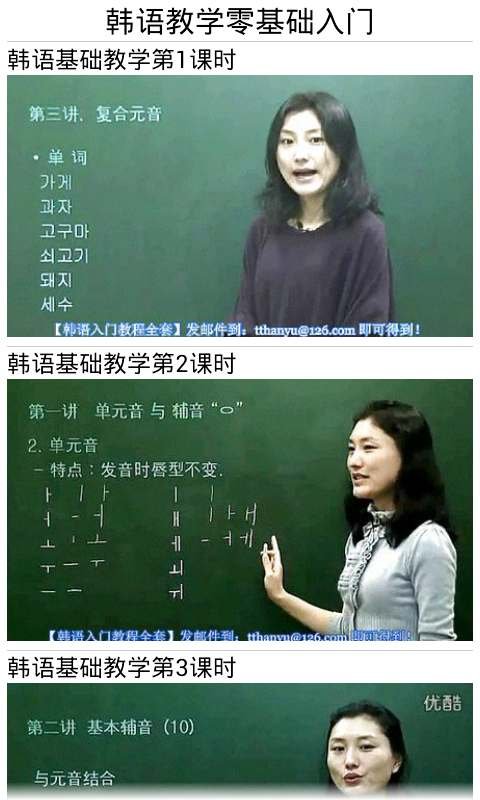 韩语教学零基础入门
韩语基础教学第1课时
第三讲. 复合元音
• 单 词
가게
과자
고구마
쇠고기
돼지
세수
【韩语入门教程全套】发邮件到：tthanyu@126.com 即可得到！
韩语基础教学第2课时
第一讲 单元音 与 辅音 “ㅇ”
2. 单元音
– 特点：发音时唇型不变.
ㅏ ㅣㅏ ㅣ ㅣ
ㅓ ㅡㅓ ㅐ ㅣㅏㅐ
ㅗ ㅗ ㅔ ㅡㅓㅔ
ㅜ ㅡㅜ ㅚ
ㅡ ㅡ ㅟ
【韩语入门教程全套】发邮件到：tthanyu@126.com 即可得到！
韩语基础教学第3课时
优酷
第二讲 基本辅音 (10)
与元音结合